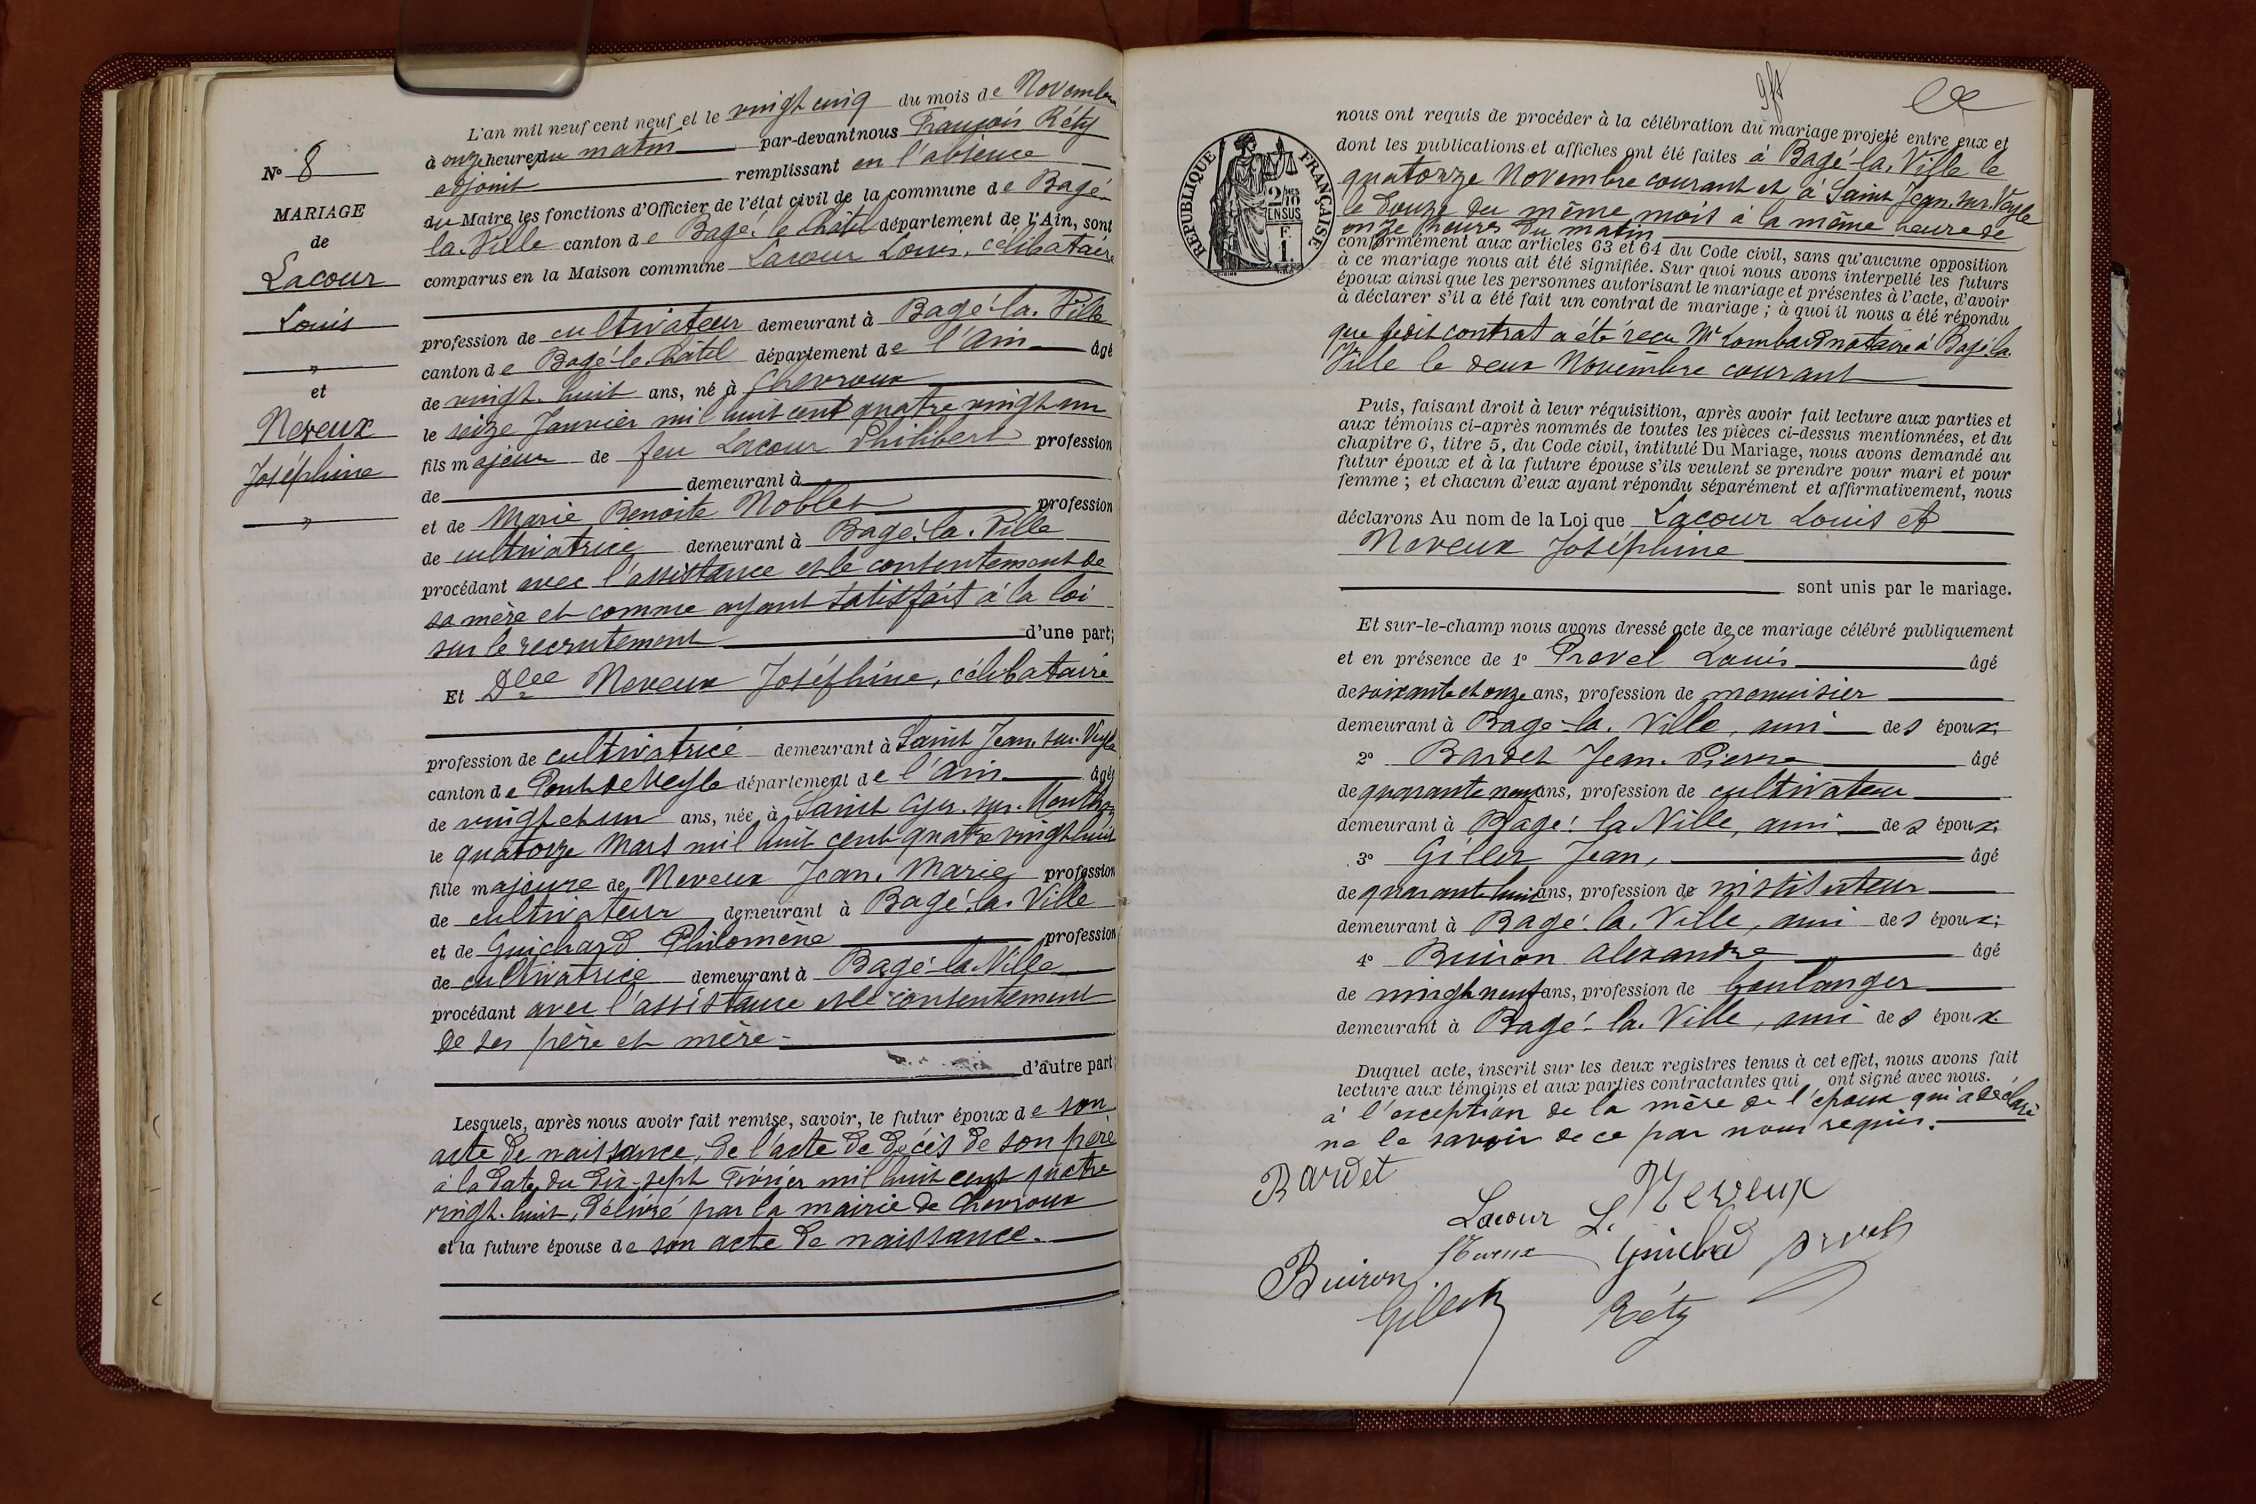 N° 8
MARIAGE
de
Lacour
Louis
"
et
Neveux
Joséphine
"
L'an mil neuf cent neuf et le vingt cinq du mois de Novembre
à onze heures du matin par-devant nous François Réty
adjoint remplissant en l'absence
du Maire les fonctions d'Officier de l'état civil de la commune de Bagé-
la-Ville canton de Bagé-le-Châtel département de l'Ain, sont
comparus en la Maison commune Lacour Louis, célibataire
profession de cultivateur demeurant à Bagé-la-Ville
canton de Bagé-le-Châtel département de l'Ain âgé
de vingt-huit ans, né à Chevroux
le seize Janvier mil huit cent quatre vingt un
fils majeur de feu Lacour Philibert profession
de demeurant à
et de Marie Benoite Noblet profession
de cultivatrice demeurant à Bagé-la-Ville
procédant avec l'assistance et le consentement de
sa mère et comme ayant satisfait à la loi
sur le recrutement d'une part;
Et Dlle Neveux Joséphine, célibataire
profession de cultivatrice demeurant à Saint Jean-sur-Veyle
canton de Pont de Veyle département de l'Ain âgée
de vingt et un ans, née à Saint Cyr-sur-Menthon
le quatorze Mars mil huit cent quatre vingt huit
fille majeure de Neveux Jean-Marie profession
de cultivateur demeurant à Bagé-la-Ville
et de Guichard Philomène profession
de cultivatrice demeurant à Bagé-la-Ville
procédant avec l'assistance et le consentement
de ses père et mère-
d'autre part;
Lesquels, après nous avoir fait remise, savoir, le futur époux de son
acte de naissance, de l'acte de décès de son père
à la date du dix-sept Février mil huit cent quatre
vingt-huit, délivré par la mairie de Chevroux
et la future épouse de son acte de naissance.
RÉPUBLIQUE FRANÇAISE
2/10 EN SUS
F.
1.
nous ont requis de procéder à la célébration du mariage projeté entre eux et
dont les publications et affiches ont été faites à Bagé-la-Ville le
quatorze Novembre courant et à Saint Jean-sur-Veyle
le douze du même mois à la même heure de
onze heures du matin
conformément aux articles 63 et 64 du Code civil, sans qu'aucune opposition
à ce mariage nous ait été signifiée. Sur quoi nous avons interpellé les futurs
époux ainsi que les personnes autorisant le mariage et présentes à l'acte, d'avoir
à déclarer s'il a été fait un contrat de mariage; à quoi il nous a été répondu
que ledit contrat a été reçu Me Lombard notaire à Bagé-la-
Ville le deux Novembre courant
Puis, faisant droit à leur réquisition, après avoir fait lecture aux parties et
aux témoins ci-après nommés de toutes les pièces ci-dessus mentionnées, et du
chapitre 6, titre 5, du Code civil, intitulé Du Mariage, nous avons demandé au
futur époux et à la future épouse s'ils veulent se prendre pour mari et pour
femme; et chacun d'eux ayant répondu séparément et affirmativement, nous
déclarons Au nom de la Loi que Lacour Louis et
Neveux Joséphine
sont unis par le mariage.
Et sur-le-champ nous avons dressé acte de ce mariage célébré publiquement
et en présence de 1° Provel Louis âgé
de soixante et onze ans, profession de menuisier
demeurant à Bagé-la-Ville, ami des époux;
2° Bardet Jean-Pierre âgé
de quarante neuf ans, profession de cultivateur
demeurant à Bagé-la Ville, ami des époux;
3° Giller Jean, âgé
de quarante huit ans, profession de instituteur
demeurant à Bagé-la-Ville, ami des époux;
4° Buiron Alexandre âgé
de vingt neuf ans, profession de boulanger
demeurant à Bagé-la-Ville, ami des époux
Duquel acte, inscrit sur les deux registres tenus à cet effet, nous avons fait
lecture aux témoins et aux parties contractantes qui ont signé avec nous.
à l'exception de la mère de l'époux qui a déclaré
ne le savoir de ce par nous requis.
Bardet
Lacour L. Neveux
Neveux Guichard Provel
Buiron
Réty